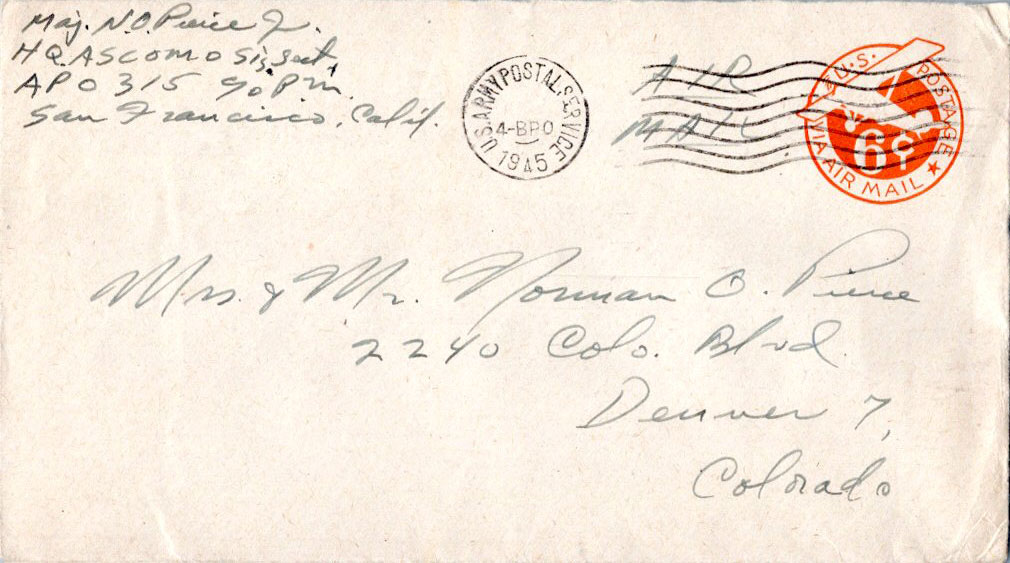 Maj. N.O. Pierce Jr.
HQ. ASCOM O Sig. Sect.
APO 315 % P.M.
San Francisco, Calif.
U.S. ARMY POSTAL SERVICE
4-BPO
1945
AIR
MAIL
U.S. POSTAGE
6¢
VIA AIR MAIL
Mrs. & Mr. Norman O. Pierce
2240 Colo. Blvd.
Denver 7,
Colorado